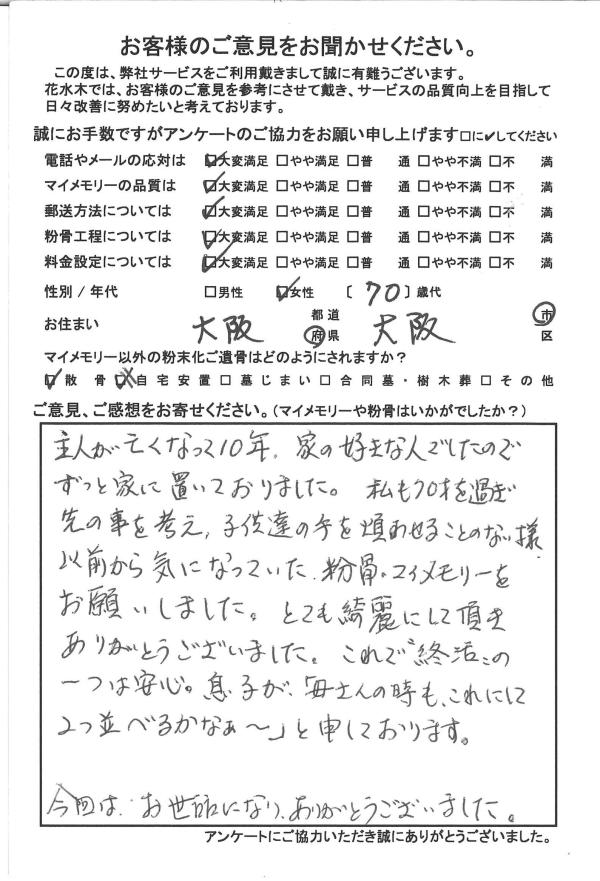 お客様のご意見をお聞かせください。
この度は、弊社サービスをご利用戴きまして誠に有難うございます。
花水木では、お客様のご意見を参考にさせて戴き、サービスの品質向上を目指して
日々改善に努めたいと考えております。
誠にお手数ですがアンケートのご協力をお願い申し上げます□に✓してください
電話やメールの応対は ☑大変満足 □やや満足 □普　通 □やや不満 □不　満
マイメモリーの品質は ☑大変満足 □やや満足 □普　通 □やや不満 □不　満
郵送方法については ☑大変満足 □やや満足 □普　通 □やや不満 □不　満
粉骨工程については ☑大変満足 □やや満足 □普　通 □やや不満 □不　満
料金設定については ☑大変満足 □やや満足 □普　通 □やや不満 □不　満
性別 / 年代 □男性 ☑女性 〔 70 〕歳代
お住まい 大阪 都道府県 大阪 市区
マイメモリー以外の粉末化ご遺骨はどのようにされますか？
☑散　骨 ☑自宅安置 □墓じまい □合同墓・樹木葬 □その他
ご意見、ご感想をお寄せください。（マイメモリーや粉骨はいかがでしたか？）
主人が亡くなって10年。家の好きな人でしたので
ずっと家に置いておりました。私も70才を過ぎ
先の事を考え、子供達の手を煩わせることのない様
以前から気になっていた、粉骨・マイメモリーを
お願いしました。とても綺麗にして頂き
ありがとうございました。これで“終活”の
一つは安心。息子が、「母さんの時も、これにして
2つ並べるかなぁ〜」と申しております。
今回は、お世話になり、ありがとうございました。
アンケートにご協力いただき誠にありがとうございました。